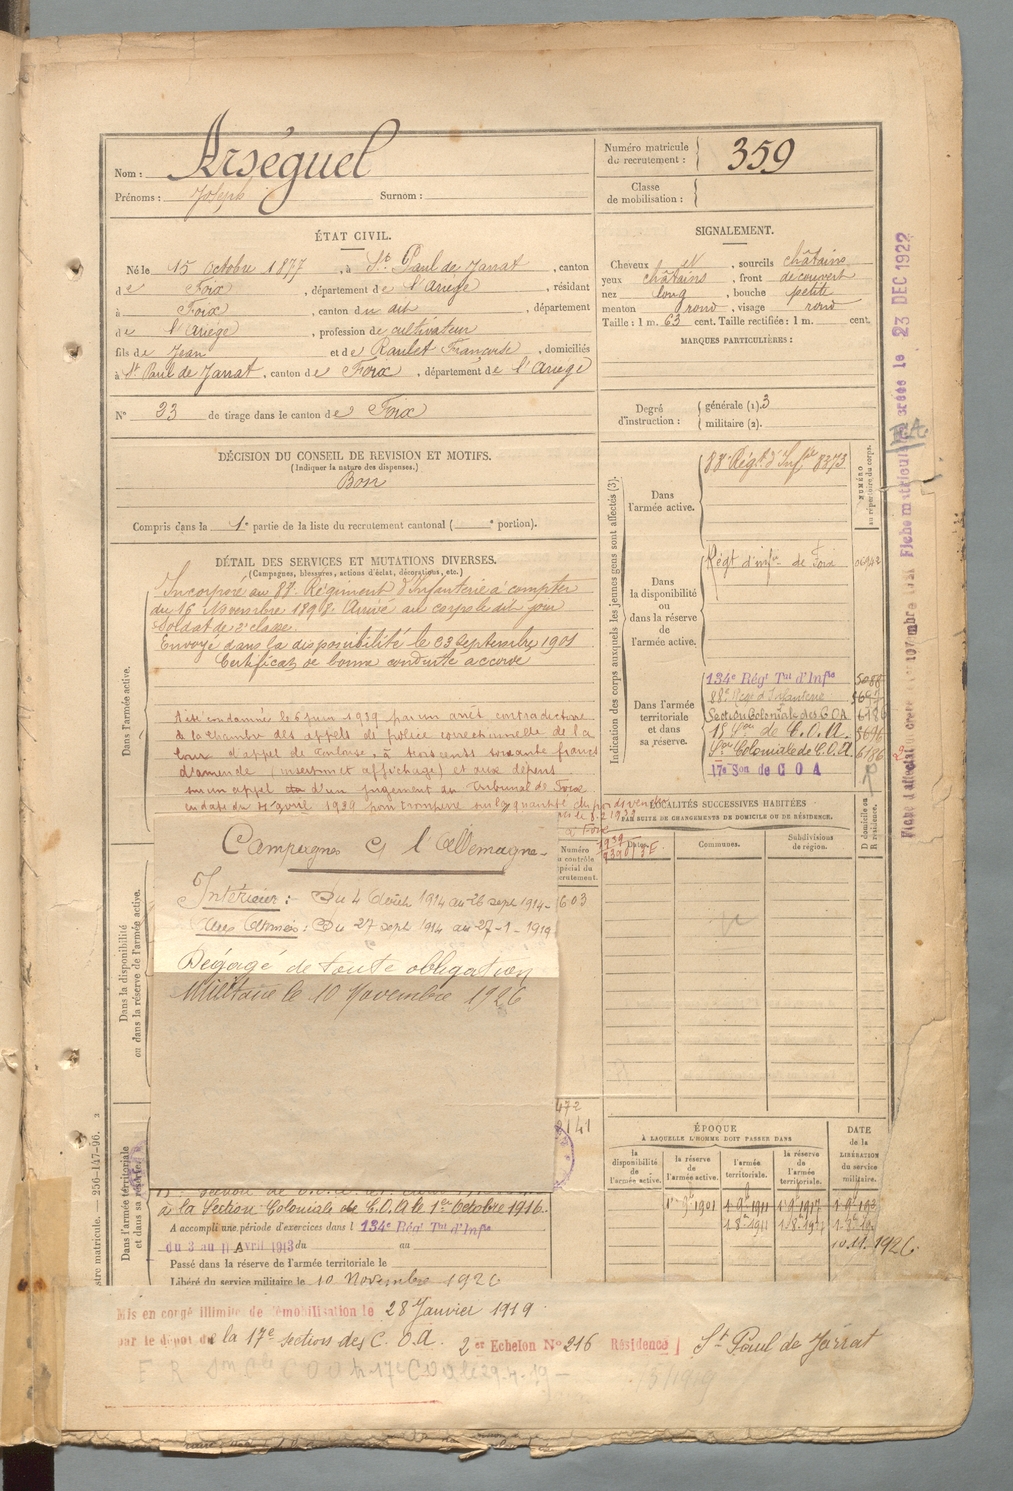 Nom : Arséguel
Prénoms : Joseph Surnom :
Numéro matricule du recrutement : 359
Classe de mobilisation :
ÉTAT CIVIL.
Né le 15 Octobre 1877, à St Paul de Jarrat, canton
de Foix, département de l'Ariège, résidant
à Foix, canton du dit, département
de l'Ariège, profession de cultivateur
fils de Jean et de Françoise, domiciliés
à St Paul de Jarrat, canton de Foix, département de l'Ariège
N° 33 de tirage dans le canton de Foix
SIGNALEMENT.
Cheveux et sourcils châtains
yeux châtains, front découvert
nez long, bouche petite
menton rond, visage rond
Taille : 1 m. 63 cent. Taille rectifiée : 1 m. cent.
MARQUES PARTICULIÈRES :
Degré d'instruction : générale (1). 3
militaire (2).
DÉCISION DU CONSEIL DE REVISION ET MOTIFS.
(Indiquer la nature des dispenses.)
Bon
Compris dans la 1e partie de la liste du recrutement cantonal ( e portion).
DÉTAIL DES SERVICES ET MUTATIONS DIVERSES.
(Campagnes, blessures, actions d'éclat, décorations, etc.)
Dans l'armée active.
Incorporé au 88e Régiment d'Infanterie à compter
du 16 Novembre 1898. Arrivé au corps le dit jour
Soldat de 2e classe.
Envoyé dans la disponibilité le 23 Septembre 1901
Certificat de bonne conduite accordé
A été condamné le 6 juin 1929 par un arrêt contradictoire
de la Chambre des appels de police correctionnelle de la
Cour d'appel de Toulouse, à trois cents soixante francs
d'amende (insertion et affichage) et aux dépens
sur un appel d'un jugement du Tribunal de Foix
en date du avril 1929 pour tromperie sur la quantité du
Campagnes C l'Allemagne
Intérieur : Du 4 Août 1914 au 26 sept 1914
Aux Armées : Du 27 sept 1914 au 27-1-1919
Dégagé de toute obligation
Militaire le 10 Novembre 1926
Dans la disponibilité ou dans la réserve de l'armée active.
Dans l'armée territoriale et dans sa réserve.
à la Section Coloniale de C.O.A le 1er Octobre 1916.
A accompli une période d'exercices dans l 134e Régt Tal d'Infie
du 3 au 11 Avril 1913 du au
Passé dans la réserve de l'armée territoriale le
Libéré du service militaire le 10 Novembre 1926
Indication des corps auxquels les jeunes gens sont affectés (3).
NUMÉRO au répertoire du corps.
Dans l'armée active. 88e Régt d'Infie 8373
Dans la disponibilité ou dans la réserve de l'armée active. Régt d'infie de Foix
Dans l'armée territoriale et dans sa réserve.
134e Régt Tal d'Infie
88e Régt d'Infanterie
Section Coloniale des COA
15 Son de C.O.A.
Son Coloniale de C.O.A 6186
17e Son de COA
LOCALITÉS SUCCESSIVES HABITÉES
PAR SUITE DE CHANGEMENTS DE DOMICILE OU DE RÉSIDENCE.
Dates. Communes. Subdivisions de région. D domicile ou R résidence.
ÉPOQUE
À LAQUELLE L'HOMME DOIT PASSER DANS
la disponibilité de l'armée active. la réserve de l'armée active. l'armée territoriale. la réserve de l'armée territoriale. DATE de la LIBÉRATION du service militaire.
1er 9e 1901 1-9-1911
10.11.1926
Fiche matriculaire créée le 23 DEC 1922
Mis en congé illimité de démobilisation le 28 Janvier 1919
par le dépôt de la 17e section des C.O.A. 2er Echelon N° 216 Résidence St Paul de Jarrat